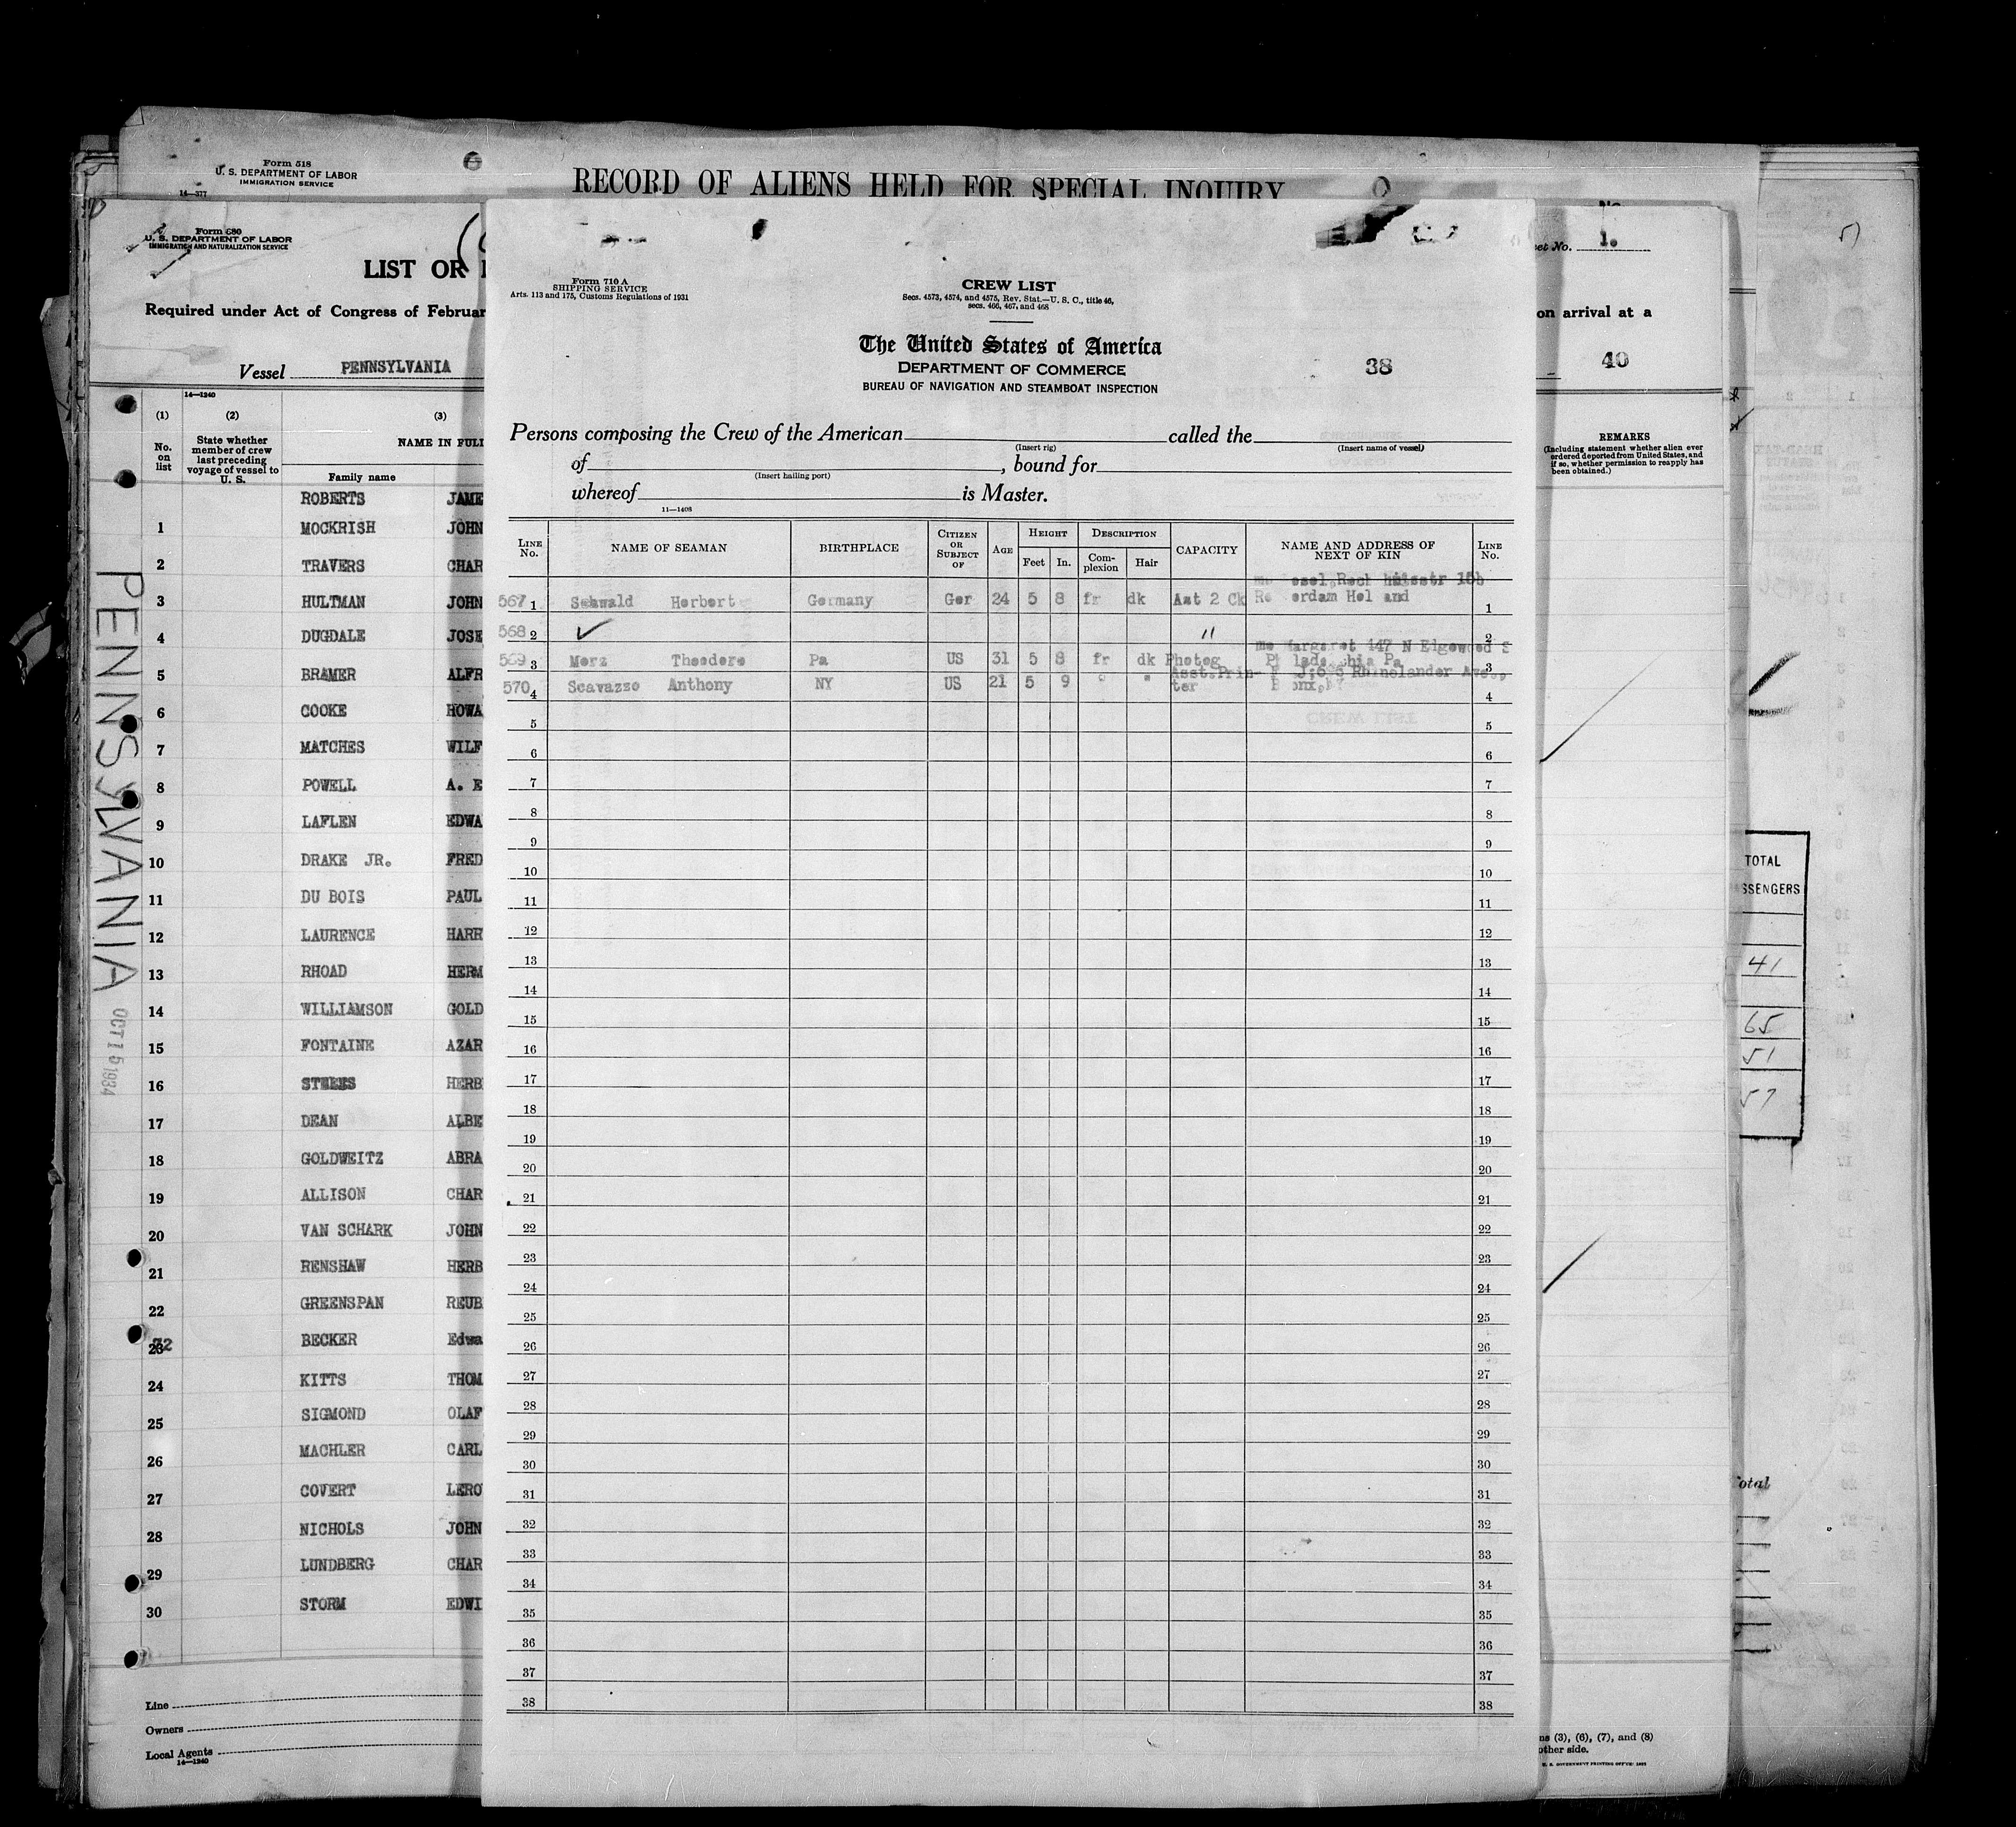 Form 518
U. S. DEPARTMENT OF LABOR
IMMIGRATION SERVICE
14—377
RECORD OF ALIENS HELD FOR SPECIAL INQUIRY
Form 680
U. S. DEPARTMENT OF LABOR
IMMIGRATION AND NATURALIZATION SERVICE
LIST OR
Required under Act of Congress of Februar
Vessel PENNSYLVANIA
14—1240
(1) (2) (3)
No. on list
State whether member of crew last preceding voyage of vessel to U. S.
NAME IN FULL
Family name
ROBERTS JAME
1 MOCKRISH JOHN
2 TRAVERS CHAR
3 HULTMAN JOHN
4 DUGDALE JOSE
5 BRAMER ALFR
6 COOKE HOWA
7 MATCHES WILF
8 POWELL A. E
9 LAFLEN EDWA
10 DRAKE JR. FRED
11 DU BOIS PAUL
12 LAURENCE HARR
13 RHOAD HERM
14 WILLIAMSON GOLD
15 FONTAINE AZAR
16 STEES HERB
17 DEAN ALBE
18 GOLDWEITZ ABRA
19 ALLISON CHAR
20 VAN SCHARK JOHN
21 RENSHAW HERB
22 GREENSPAN REUB
23 BECKER Edwa
24 KITTS THOM
25 SIGMOND OLAF
26 MACHLER CARL
27 COVERT LERO
28 NICHOLS JOHN
29 LUNDBERG CHAR
30 STORM EDWI
Line
Owners
Local Agents
14—1240
PENNSYLVANIA
OCT 15 1934
Form 710 A
SHIPPING SERVICE
Arts. 113 and 175, Customs Regulations of 1931
CREW LIST
Secs. 4573, 4574, and 4575, Rev. Stat.—U. S. C., title 46,
secs. 466, 467, and 468
The United States of America
DEPARTMENT OF COMMERCE
BUREAU OF NAVIGATION AND STEAMBOAT INSPECTION
38
Persons composing the Crew of the American called the
(Insert rig) (Insert name of vessel)
of , bound for
(Insert hailing port)
whereof is Master.
11—1408
LINE No. NAME OF SEAMAN BIRTHPLACE CITIZEN OR SUBJECT OF AGE HEIGHT Feet In. DESCRIPTION Complexion Hair CAPACITY NAME AND ADDRESS OF NEXT OF KIN LINE No.
567 1 Sehwald Herbert Germany Ger 24 5 8 fr dk Ast 2 Ck 1
568 2 ✓ " 2
569 3 Merz Theodore Pa US 31 5 8 fr dk Photog Margaret 147 N Elgewood Pa 3
570 4 Scavazzo Anthony NY US 21 5 9 " " Asst.Printer Rhinelander Ave., 4
5 5
6 6
7 7
8 8
9 9
10 10
11 11
12 12
13 13
14 14
15 15
16 16
17 17
18 18
19 19
20 20
21 21
22 22
23 23
24 24
25 25
26 26
27 27
28 28
29 29
30 30
31 31
32 32
33 33
34 34
35 35
36 36
37 37
38 38
No. 1.
on arrival at a
40
REMARKS
(Including statement whether alien ever ordered deported from United States, and if so, whether permission to reapply has been obtained.)
(3), (6), (7), and (8)
other side.
U. S. GOVERNMENT PRINTING OFFICE
TOTAL
SSENGERS
41
65
51
57
otal